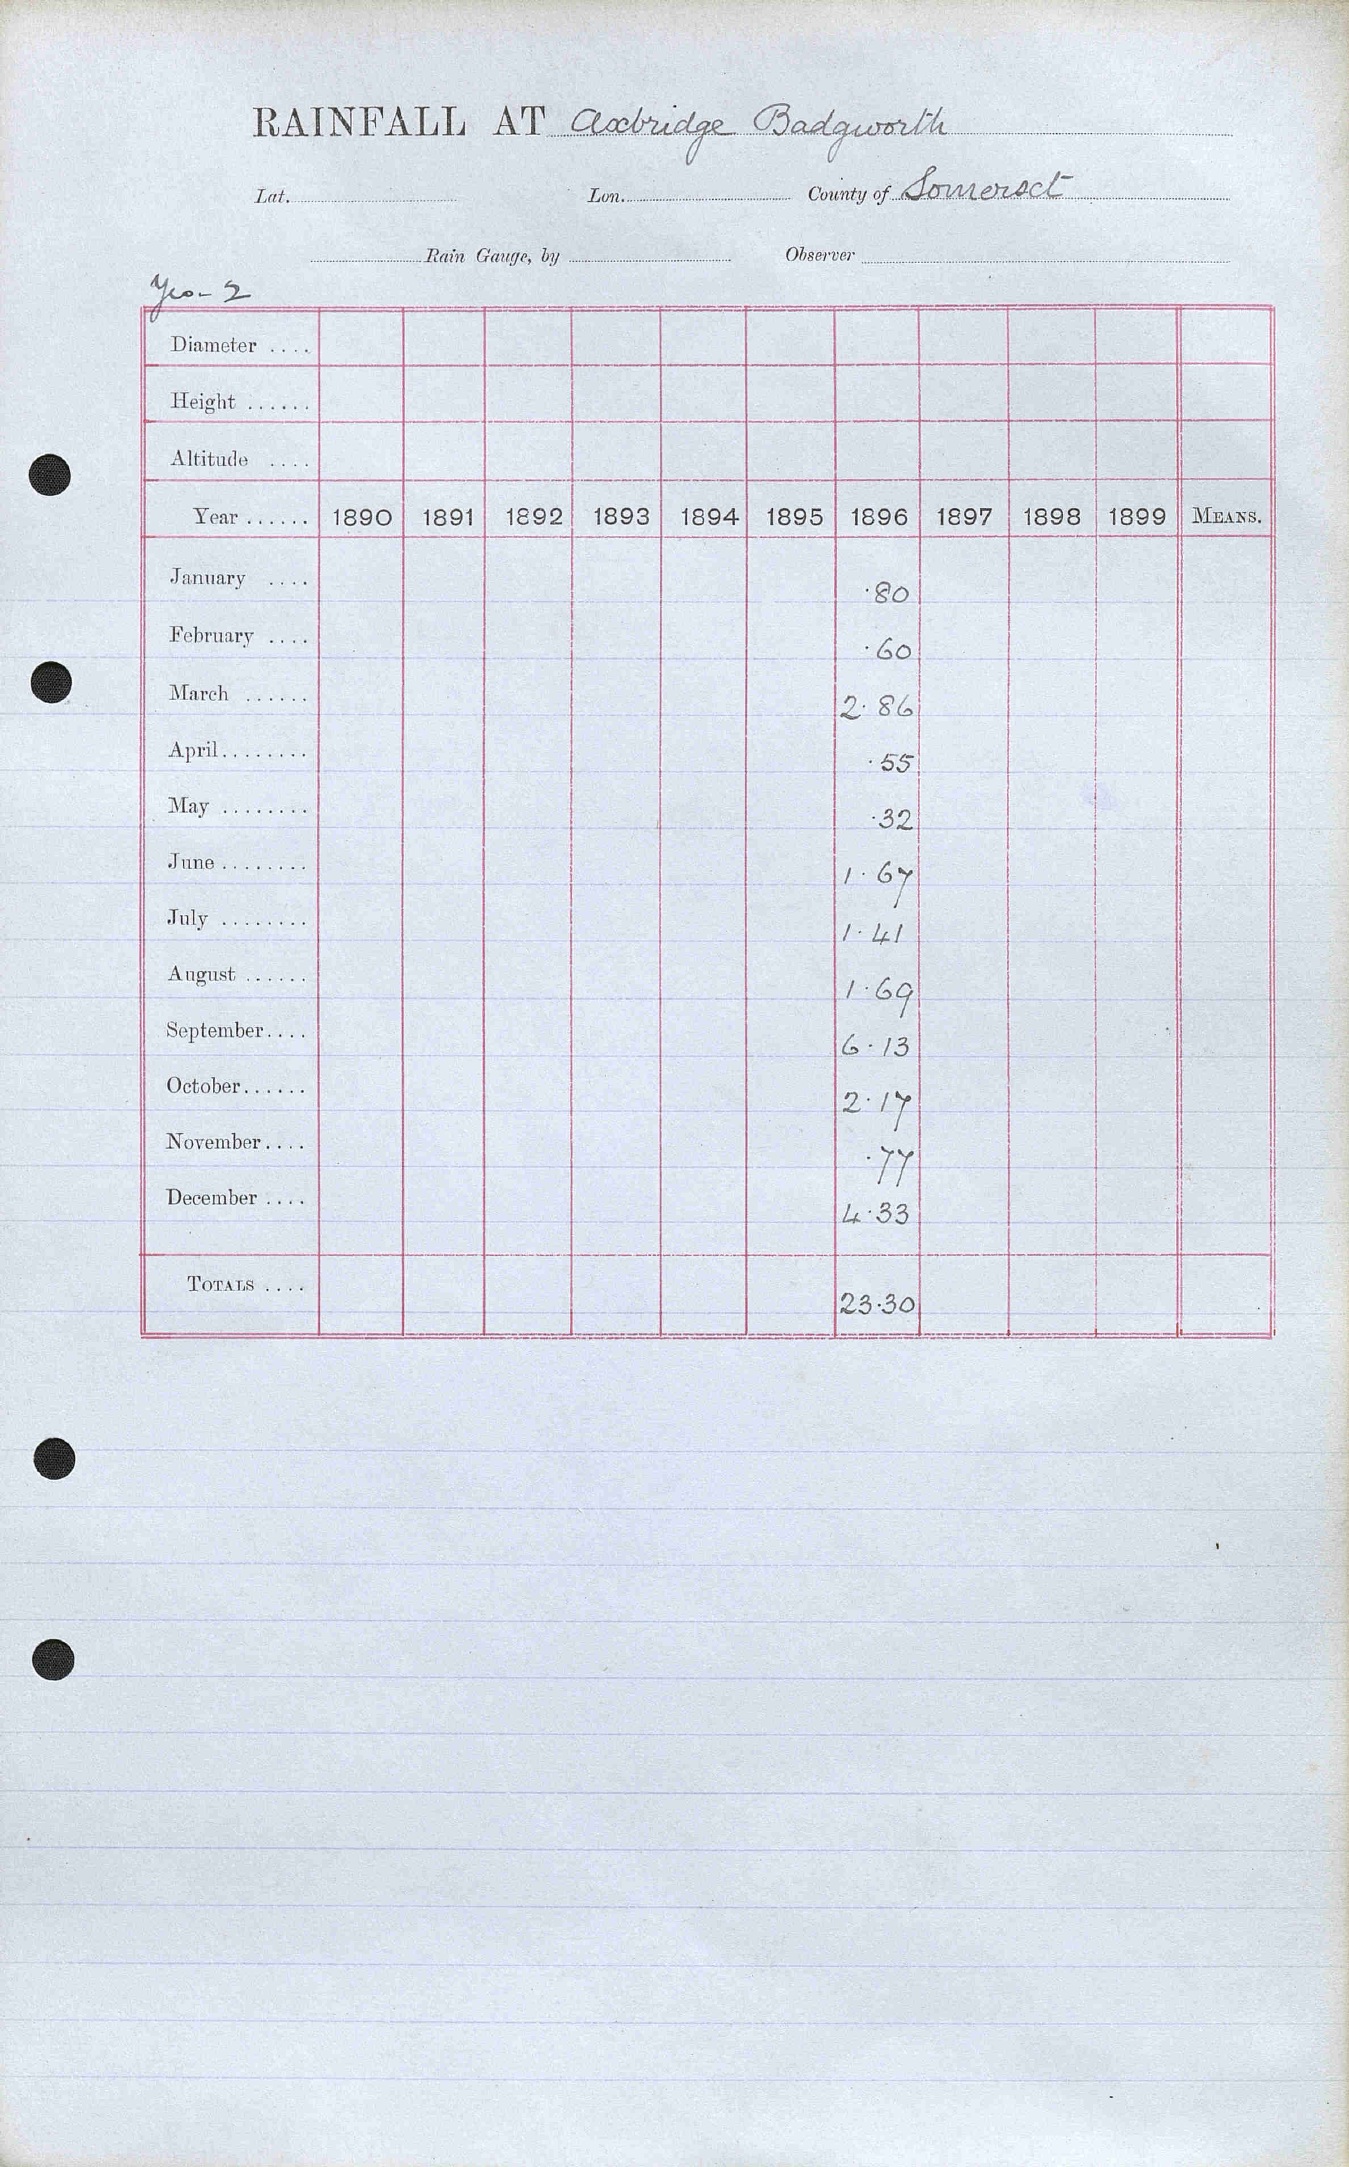 RAINFALL AT Axbridge Badgworth
Lat. Lon. County of Somerset
Rain Gauge, by Observer
Yeo-2
Diameter ....
Height ......
Altitude ....
Year ...... 1890 1891 1892 1893 1894 1895 1896 1897 1898 1899 MEANS.
January .... ·80
February .... ·60
March ...... 2·86
April........ ·55
May ........ ·32
June ........ 1·67
July ........ 1·41
August ...... 1·69
September.... 6·13
October...... 2·17
November.... ·77
December .... 4·33
TOTALS .... 23·30